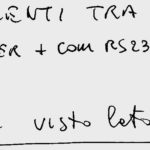 ENTI TRA
ER + COM RS23
visto lato